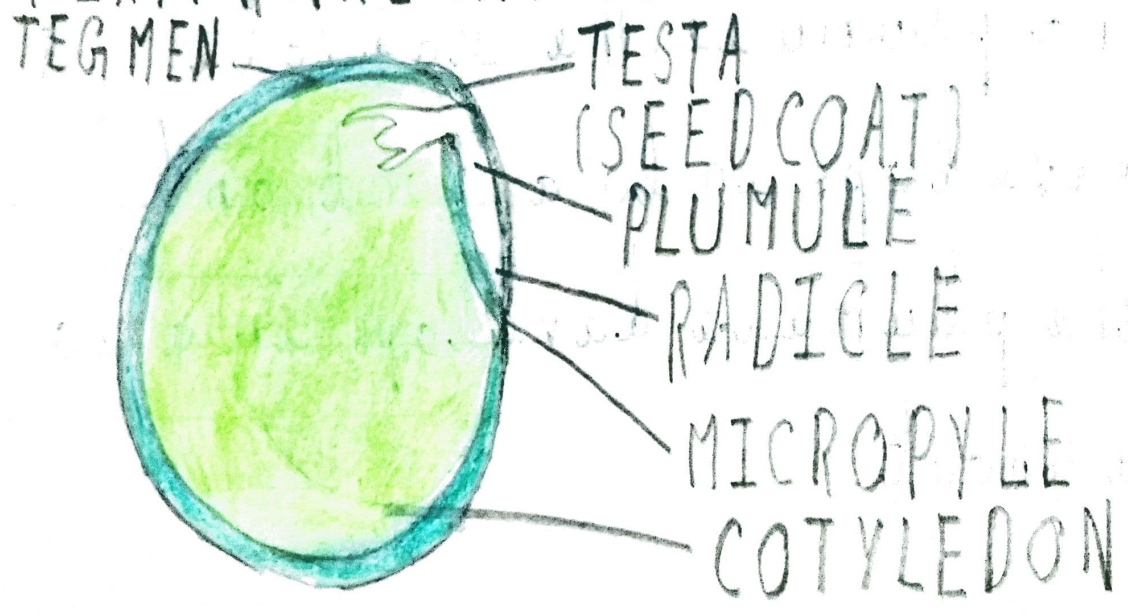 TEGMEN
TESTA
(SEED COAT)
PLUMULE
RADICLE
MICROPYLE
COTYLEDON